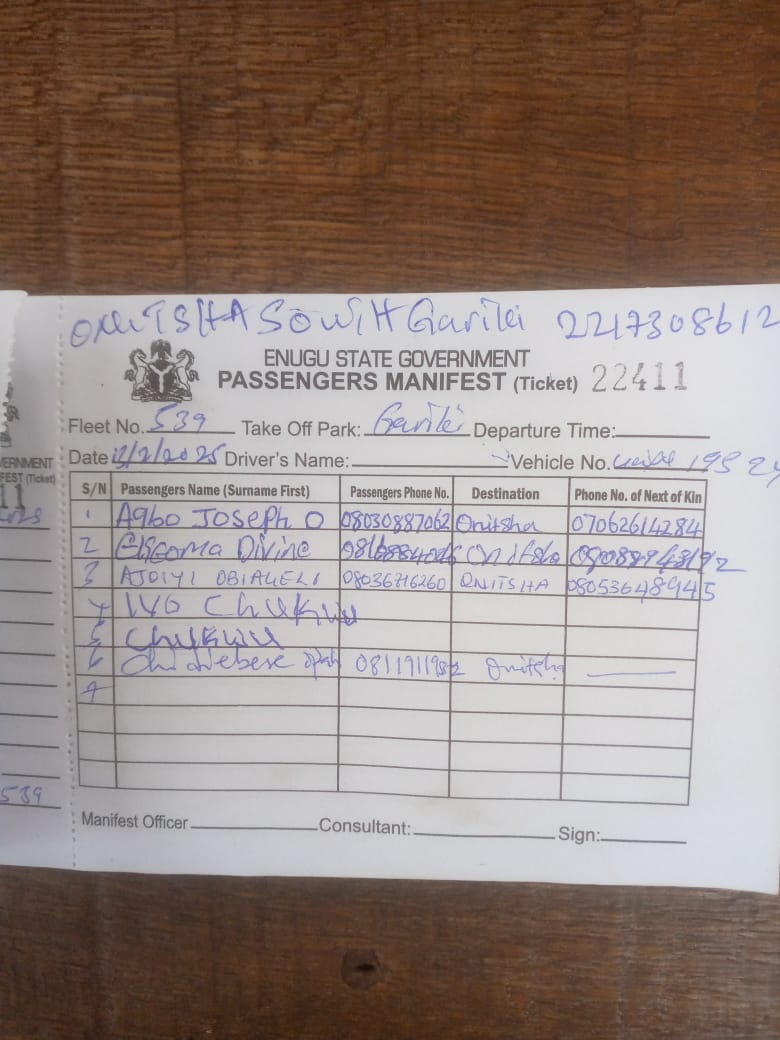 ONITSHA SOUTH Gariki 2217308612
ENUGU STATE GOVERNMENT
PASSENGERS MANIFEST (Ticket) 22411
Fleet No. 539 Take Off Park: Gariki Departure Time:
Date 12/2/2025 Driver's Name: Vehicle No. 195 24
S/N Passengers Name (Surname First) Passengers Phone No. Destination Phone No. of Next of Kin
1 Agbo Joseph O 08030887062 Onitsha 07062614284
2 Divine Onitsha
3 AJOIYI OBIAGELI 08036716260 ONITSHA 08053648945
4 IVO Chukwu
5 Chukwu
6 Onitsha
7
Manifest Officer Consultant: Sign:
ERNMENT
FEST (Ticket)
11
539